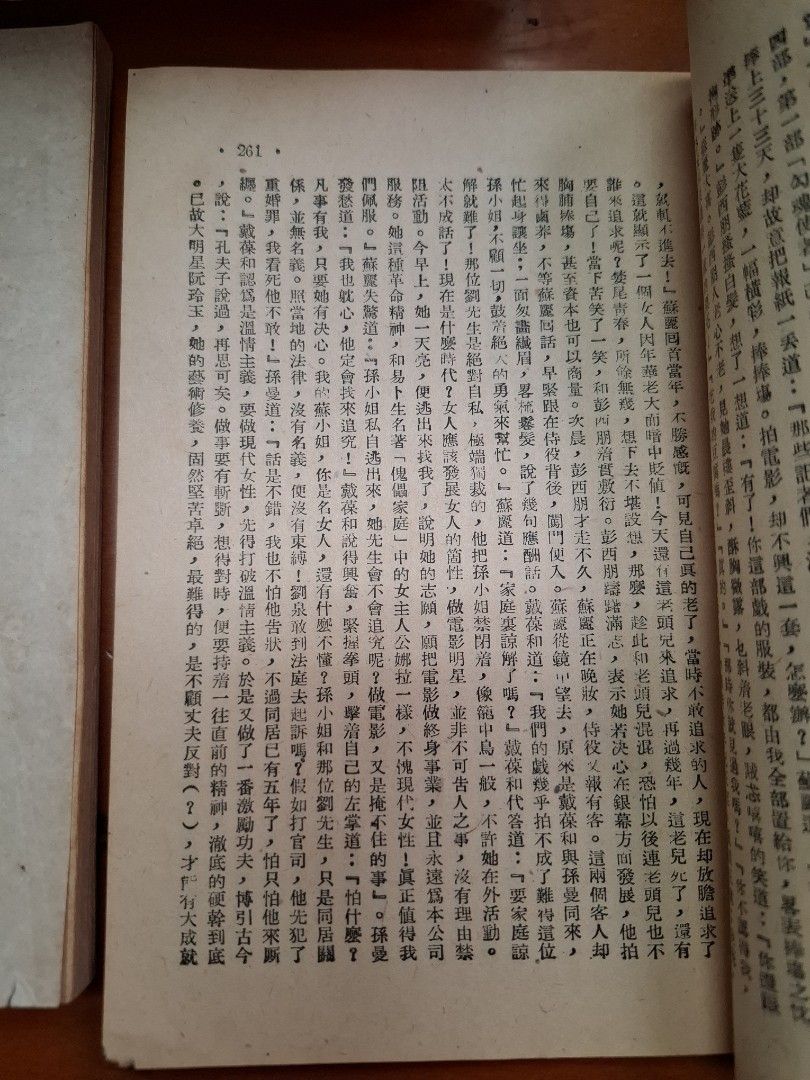 ，就軋不進去！』蘇麗囘首當年，不勝感慨，可見自己真的老了，當時不敢追求的人，現在却放膽追求了
。這就顯示了一個女人因年華老大面暗中貶值！今天還有這老頭兒來追求，再過幾年，這老兒死了，還有
誰來追求呢？婪尾青春，所餘無幾，想下去不堪設想，那麼，趁此和老頭兒混混，恐怕以後連老頭兒也不
要自己了！當下苦笑了一笑，和彭西朋着實敷衍。彭西朋躊躇滿志，表示她若決心在銀幕方面發展，他拍
胸脯捧塲，甚至資本也可以商量。次晨，彭西朋才走不久，蘇麗正在晚妝，侍役又報有客。這兩個客人却
來得鹵莽，不等蘇麗囘話，早緊跟在侍役背後，闖門便入。蘇麗從鏡中望去，原來是戴葆和與孫曼同來，
忙起身讓坐；一面匆畫纖眉，畧梳鬆髮，說了幾句應酬話。戴葆和道：『我們的戲幾乎拍不成了難得這位
孫小姐，不顧一切，鼓着絕大的勇氣來幫忙。』蘇麗道：『家庭裏諒解了嗎？』戴葆和代答道：『要家庭諒
解就難了！那位劉先生是絕對自私，極端獨裁的，他把孫小姐禁閉着，像籠中鳥一般，不許她在外活動。
太不成話了！現在是什麼時代？女人應該發展女人的箇性，做電影明星，並非不可告人之事，沒有理由禁
阻活動。今早上，她一天亮，便逃出來找我了，說明她的志願，願把電影做終身事業，並且永遠為本公司
服務。她這種革命精神，和易卜生名著「傀儡家庭」中的女主人公娜拉一樣，不愧現代女性！眞正值得我
們佩服。』蘇麗失驚道：『孫小姐私自逃出來，她先生會不會追究呢？做電影，又是掩不住的事』。孫曼
發愁道：『我也躭心，他定會找來追究！』戴葆和說得興奮，緊握拳頭，擊着自己的左掌道：『怕什麼？
凡事有我，只要她有決心。我的蘇小姐，你是名女人，還有什麼不懂？孫小姐和那位劉先生，只是同居關
係，並無名義。照當地的法律，沒有名義，便沒有束縛！劉泉敢到法庭去起訴嗎？假如打官司，他先犯了
重婚罪，我看死他不敢！』孫曼道：『話是不錯，我也不怕他告狀，不過同居已有五年了，怕只怕他來厮
纏。』戴葆和認為是溫情主義，要做現代女性，先得打破溫情主義。於是又做了一番激勵功夫，博引古今
，說：『孔夫子說過，再思可矣。做事要有斬斷，想得對時，便要持着一往直前的精神，澈底的硬幹到底
。已故大明星阮玲玉，她的藝術修養，固然堅苦卓絕，最難得的，是不顧丈夫反對（？），才能有大成就
• 261 •